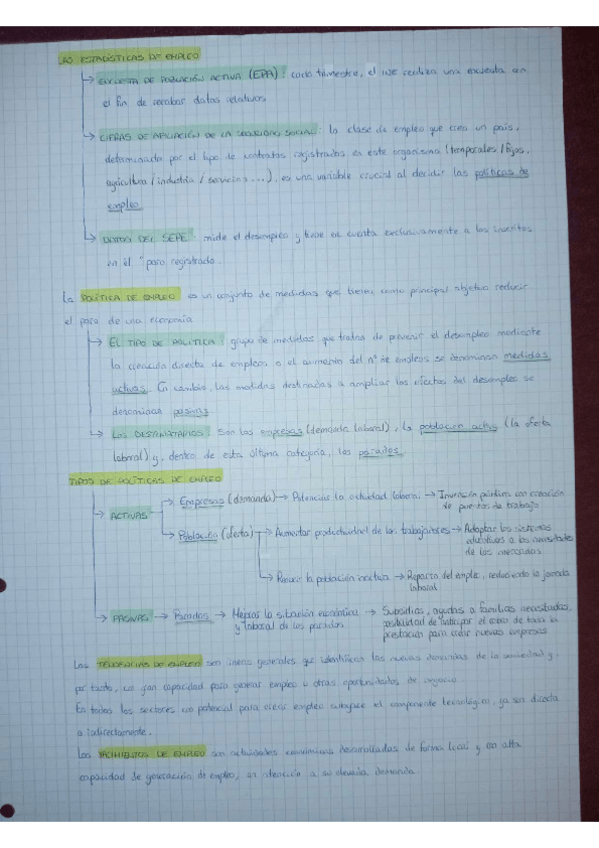 LAS ESTADÍSTICAS DE EMPLEO
ENCUESTA DE POBLACIÓN ACTIVA (EPA): cada trimestre, el INE realiza una encuesta en
el fin de recabar datos relativos
CIFRAS DE AFILIACIÓN DE LA SEGURIDAD SOCIAL: la clase de empleo que crea un país,
determinada por el tipo de contratos registrados en este organismo (temporales / fijos,
agricultura / industria / servicios ...), es una variable crucial al decidir las políticas de
empleo
DATOS DEL SEPE: mide el desempleo y tiene en cuenta exclusivamente a los inscritos
en el "paro registrado.
La POLÍTICA DE EMPLEO es un conjunto de medidas que tienen, como principal objetivo reducir
el paro de una economía
EL TIPO DE POLÍTICA: grupo de medidas que tratan de prevenir el desempleo mediante
la creación directa de empleos o el aumento del nº de empleos se denominan medidas
activas. En cambio, las medidas destinadas a ampliar los efectos del desempleo se
denominan pasivas
LOS DESTINATARIOS: Son las empresas (demanda laboral), la población activa (la oferta
laboral) y, dentro de esta última categoría, los parados.
TIPOS DE POLÍTICAS DE EMPLEO
ACTIVAS → Empresas (demanda) → Potenciar la actividad laboral → Inversión pública con creación
de puestos de trabajo
Población (oferta) → Aumentar productividad de los trabajadores → Adaptar los sistemas
educativos a las necesidades
de los mercados
→ Reducir la población inactiva → Reparto del empleo, reduciendo la jornada
laboral
PASIVAS → Parados → Mejorar la situación económica → Subsidios, ayudas a familias necesitadas,
y laboral de los parados posibilidad de anticipar el cobro de toda la
prestación para crear nuevas empresas
Las TENDENCIAS DE EMPLEO son líneas generales que identifican las nuevas demandas de la sociedad y,
por tanto, un gran capacidad para generar empleo u otras oportunidades de negocio.
En todos los sectores con potencial para crear empleo subyace el componente tecnológico, ya sea directa
o indirectamente.
Los YACIMIENTOS DE EMPLEO son actividades económicas desarrolladas de forma local y con alta
capacidad de generación de empleo, en atención a su elevada demanda.